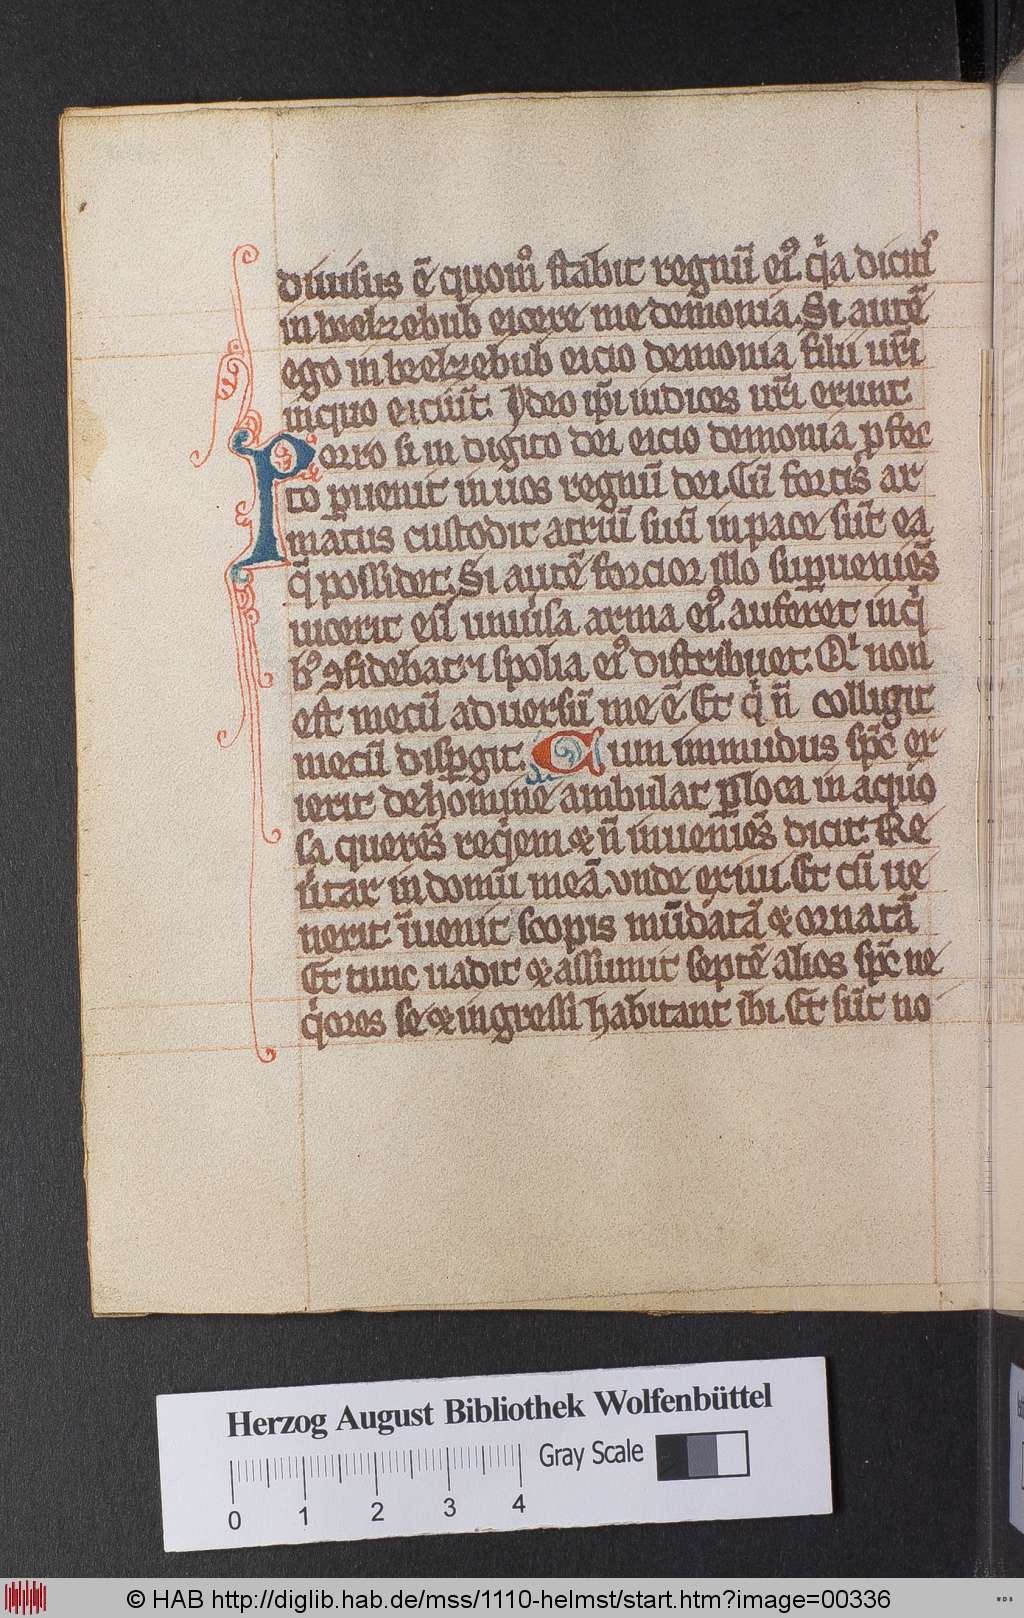 diuisus ē quom̊ stabit regnū ei⁹. qͥa dicitͥs
in beelzebub eicere me demonia. Si autē
ego in beelzebub eicio demonia filii ur̄i
in quo eiciūt. Ideo ip̄i iudices ur̄i erunt.
Porro si in digito dei eicio demonia ꝓfec
to ꝑuenit in uos regnū dei. Cū fortis ar
matus custodit atriū suū in pace sūt ea
q̄ possidet. Si autē forcior illo suꝑueniēs
uicerit eū uniu̾sa arma ei⁹. auferet in qͥ
b⁹ ꝯfidebat ⁊ spolia ei⁹ distribuet. Qͥ non
est mecū aduersū me ē. Et qͥ n̄ colligit
mecū disꝑgit. Cum inmundus sp̄c ex
ierit de homine ambulat ꝑ loca in aquo
sa querēs reqͥem & n̄ inueniēs dicit. Re
u̾tar in domū meā. vnde exiui. Et cū ue
nerit īuenit scopis mūdatā & ornatā
Et tunc uadit & assumit septē alios sp̄c ne
qͥores se & ingressi habitant ibi. Et sūt no
Herzog August Bibliothek Wolfenbüttel
Gray Scale
0 1 2 3 4
© HAB http://diglib.hab.de/mss/1110-helmst/start.htm?image=00336